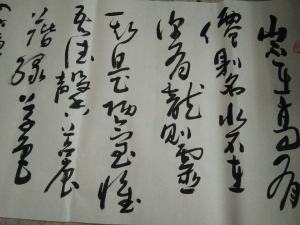 山不在高有
仙則名水不在
深有龍則靈
斯是陋室惟
吾德馨苔痕
上階綠草色